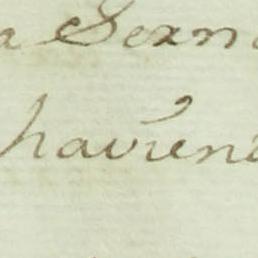 a Sexn
havien